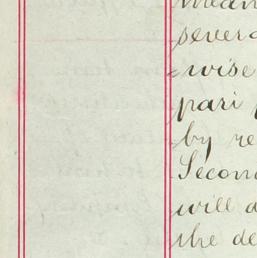 mean
severa
wise
pari p
by re
Secon
will a
the de